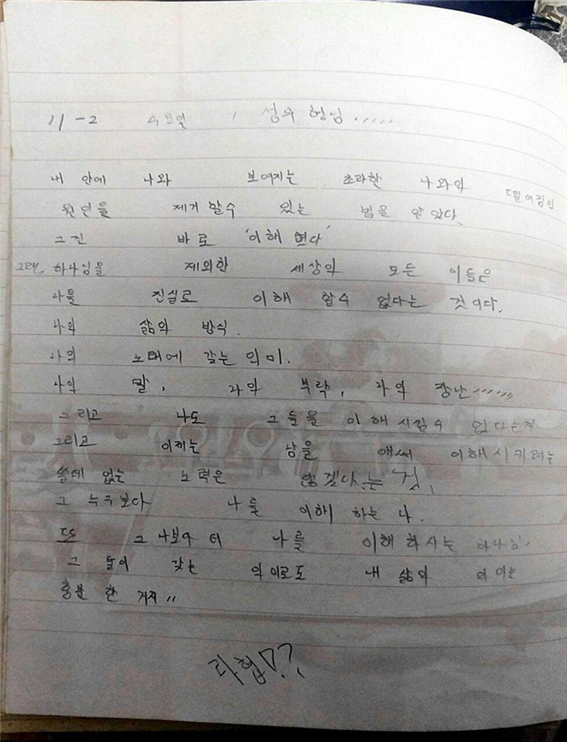 11-2 수요일 성우형님.....
내 안에 나와 보여지는 초라한 나와의
원인을 제거 할수 있는 법을 알았다.
그건 바로 '이해 였다'
그래. 하나님을 제외한 세상의 모든 이들은
나를 진실로 이해 할수 없다는 것이다.
나의 삶의 방식.
나의 노래에 갖는 의미.
나의 말, 나의 부탁, 나의 장난......
그리고 나도 그들을 이해시킬수 없다는것
그리고 이제는 남을 애써 이해시키려는
쓸데 없는 노력은 않겠다는 것.
그 누구보다 나를 이해 하는 나.
또 그 나보다 더 나를 이해하시는 하나님.
그 둘이 갖는 의미로도 내 삶의
충분 한 거지,,